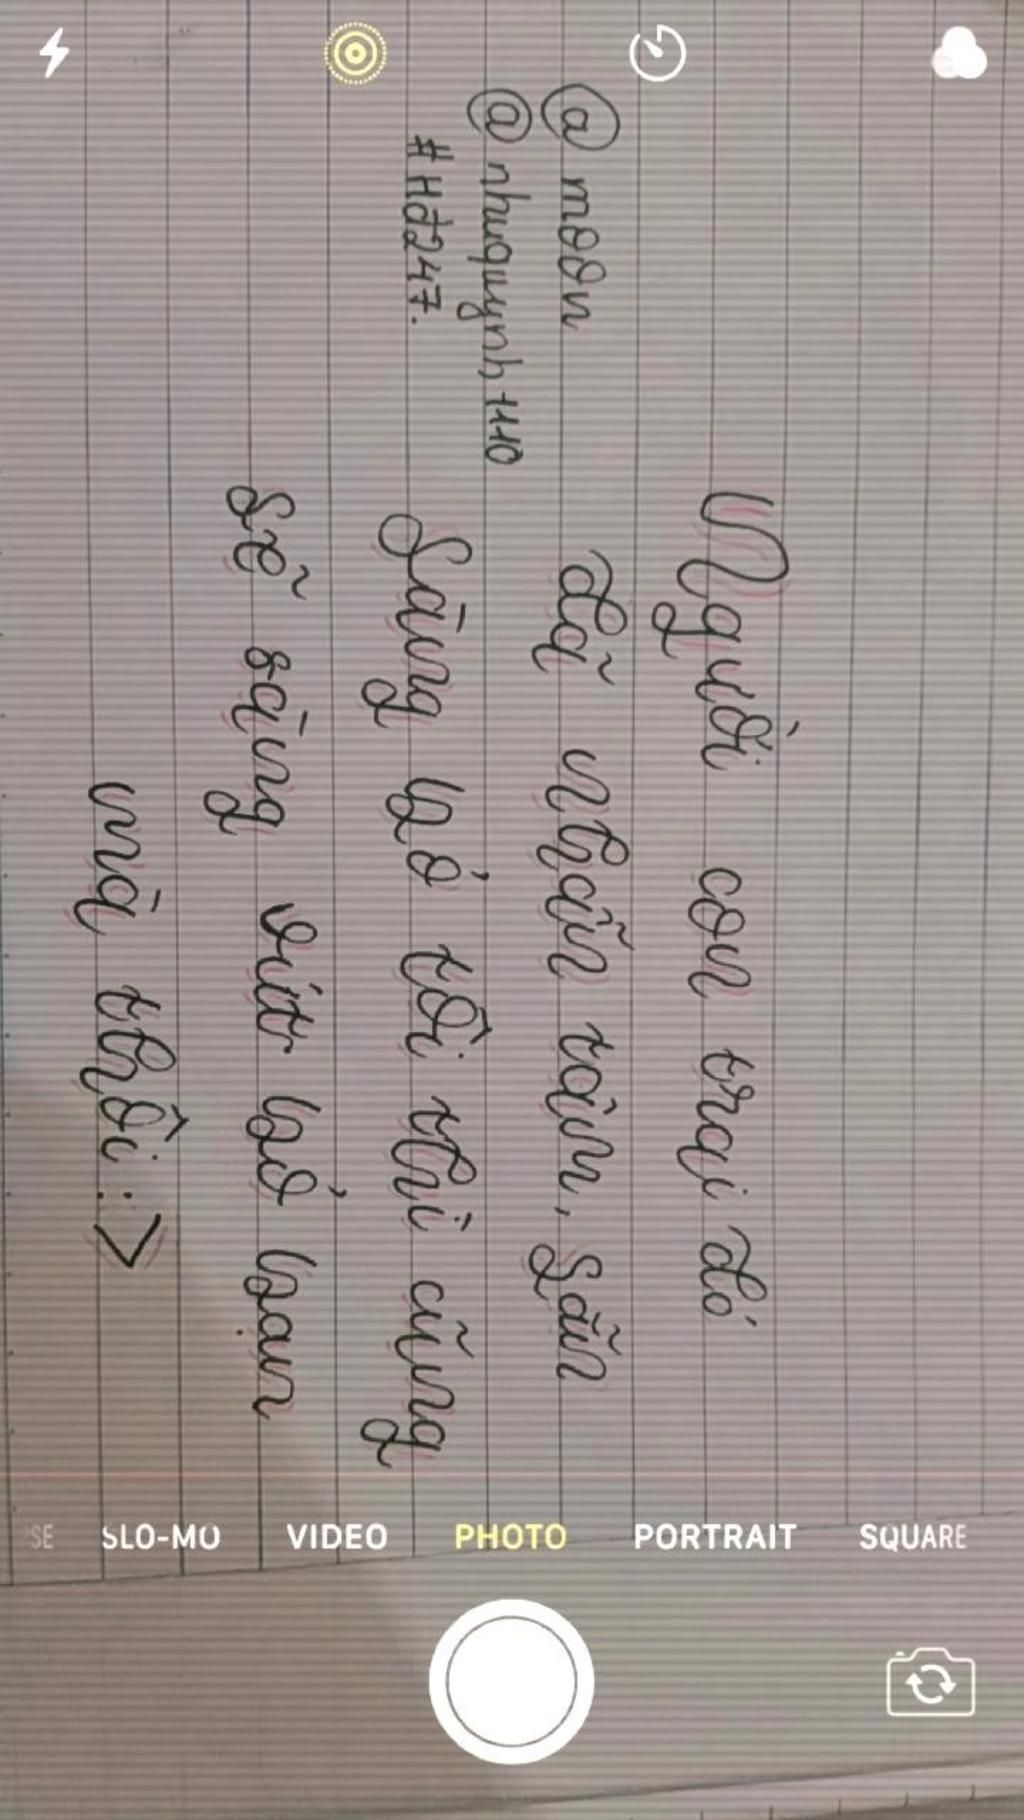 @ moon
@ nhuquynh+110
#Hđ247.
Người con trai đó
đã nhẫn tâm, sẵn
Sàng bỏ tôi thì cũng
sẽ sàng vứt bỏ bạn
mà thôi :>
SLO-MO VIDEO PHOTO PORTRAIT SQUARE